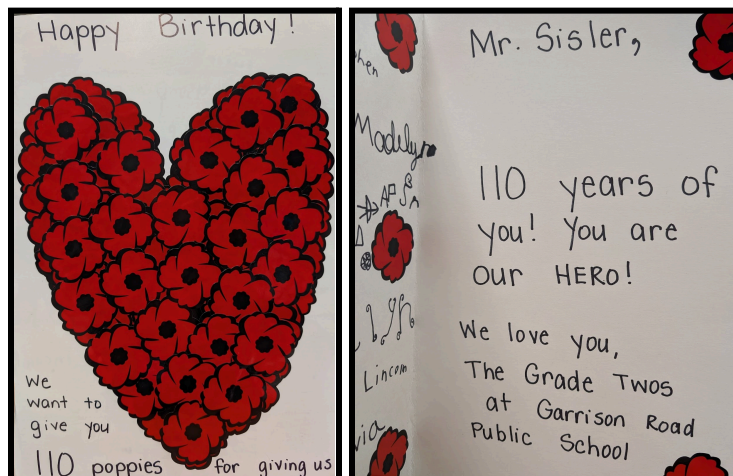 Happy Birthday!
We
want to
give you
110 poppies for giving us
Madelyn
Lincoln
Mr. Sisler,
110 years of
you! You are
our HERO!
We love you,
The Grade Twos
at Garrison Road
Public School